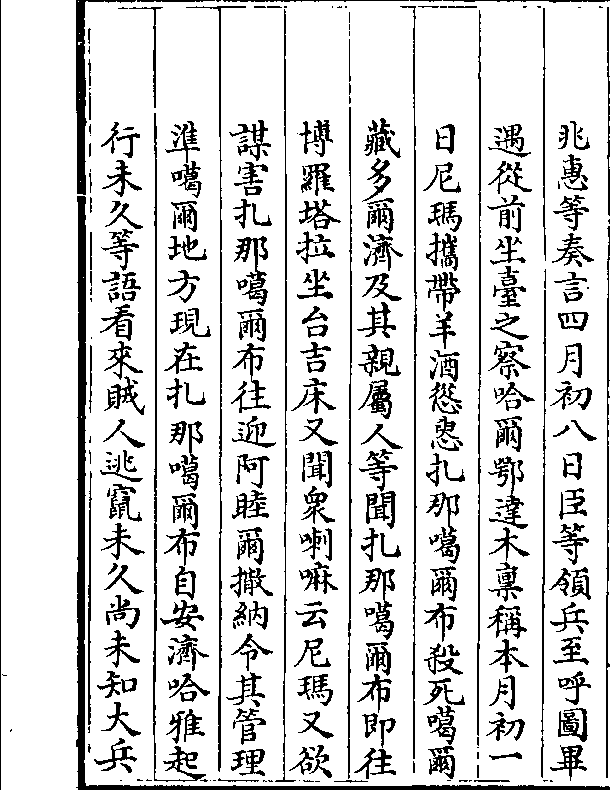 兆惠等奏言四月初八日臣等領兵至呼圖畢
遇從前坐臺之察哈爾鄂達木稟稱本月初一
日尼瑪攜帶羊酒慫恿扎那噶爾布殺死噶爾
藏多爾濟及其親屬人等聞扎那噶爾布即往
博羅塔拉坐台吉床又聞衆喇嘛云尼瑪又欲
謀害扎那噶爾布往迎阿睦爾撒納令其管理
準噶爾地方現在扎那噶爾布自安濟哈雅起
行未久等語看來賊人逃竄未久尚未知大兵